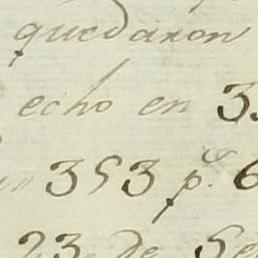 quedaron
echo en 3
353 p.^e 6
23 de Se